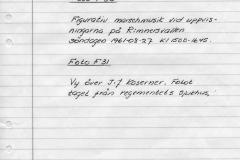 Figurativ marschmusik vid uppvis-
ningarna på Rimnersvallen
söndagen 1961-08-27 kl 1500-1645.
Foto F31
Vy över I.17 Kaserner. Fotot
taget från regementets sjukhus.